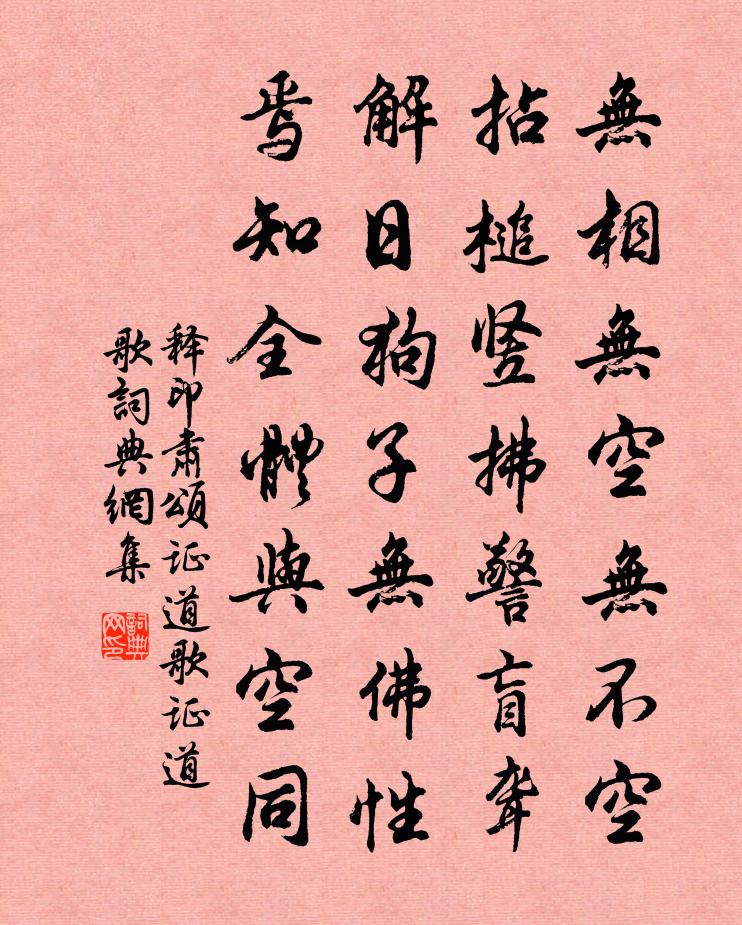 無相無空無不空
拈槌竖拂警盲聋
解日狗子無佛性
焉知全體與空同
释印肃颂证道歌证道
歌詞典網集
詞典網印